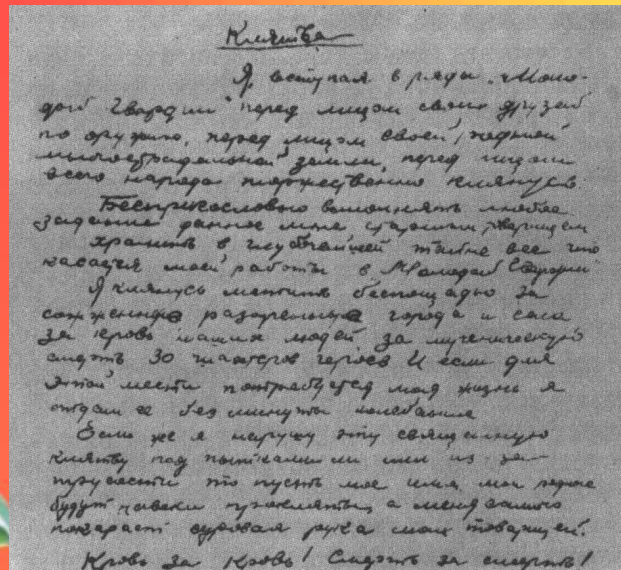 Клятва
Я, вступая в ряды „Моло-
дой Гвардии" перед лицом своих друзей
по оружию, перед лицом своей, родной
многострадальной земли, перед лицом
всего народа торжественно клянусь
Беспрекословно выполнять любое
задание данное мне старшим товарищем
хранить в глубочайшей тайне все что
касается моей работы в Молодой Гвардии
Я клянусь мстить беспощадно за
сожженные разоренные города и села
за кровь наших людей за мученическую
смерть 30 шахтеров героев И если для
этой мести потребуется моя жизнь я
отдам ее без минуты колебания
Если же я нарушу эту священную
клятву под пытками ли или из-за
трусости то пусть мое имя, мои родные
будут навеки прокляты, а меня самого
покарает суровая рука моих товарищей.
Кровь за кровь! Смерть за смерть!